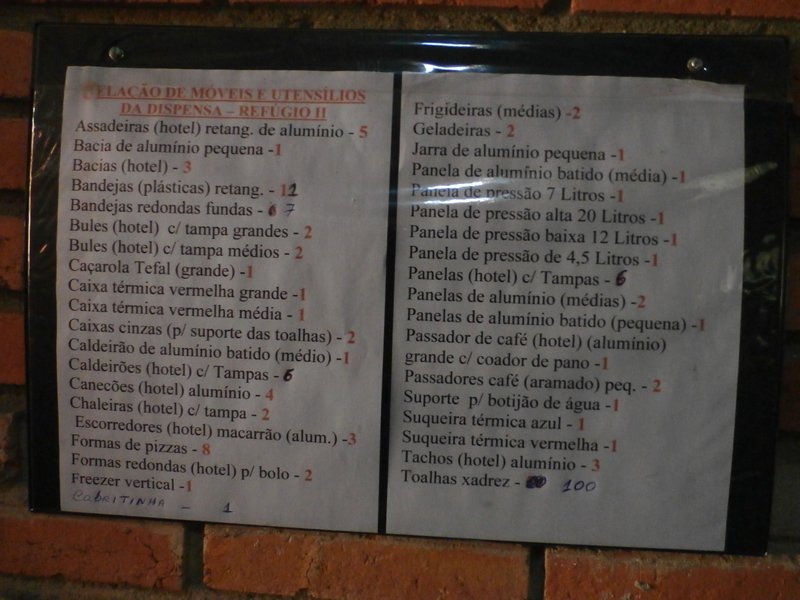 RELAÇÃO DE MÓVEIS E UTENSÍLIOS
DA DISPENSA – REFÚGIO II
Assadeiras (hotel) retang. de alumínio - 5
Bacia de alumínio pequena -1
Bacias (hotel) - 3
Bandejas (plásticas) retang. - 12
Bandejas redondas fundas - 6 7
Bules (hotel) c/ tampa grandes - 2
Bules (hotel) c/ tampa médios - 2
Caçarola Tefal (grande) -1
Caixa térmica vermelha grande -1
Caixa térmica vermelha média - 1
Caixas cinzas (p/ suporte das toalhas) - 2
Caldeirão de alumínio batido (médio) -1
Caldeirões (hotel) c/ Tampas - 6
Canecões (hotel) alumínio - 4
Chaleiras (hotel) c/ tampa - 2
Escorredores (hotel) macarrão (alum.) -3
Formas de pizzas - 8
Formas redondas (hotel) p/ bolo - 2
Freezer vertical -1
CABRITINHA - 1
Frigideiras (médias) -2
Geladeiras - 2
Jarra de alumínio pequena -1
Panela de alumínio batido (média) -1
Panela de pressão 7 Litros -1
Panela de pressão alta 20 Litros -1
Panela de pressão baixa 12 Litros -1
Panela de pressão de 4,5 Litros -1
Panelas (hotel) c/ Tampas - 6
Panelas de alumínio (médias) -2
Panelas de alumínio batido (pequena) -1
Passador de café (hotel) (alumínio)
grande c/ coador de pano -1
Passadores café (aramado) peq. - 2
Suporte p/ botijão de água -1
Suqueira térmica azul - 1
Suqueira térmica vermelha -1
Tachos (hotel) alumínio - 3
Toalhas xadrez - 100